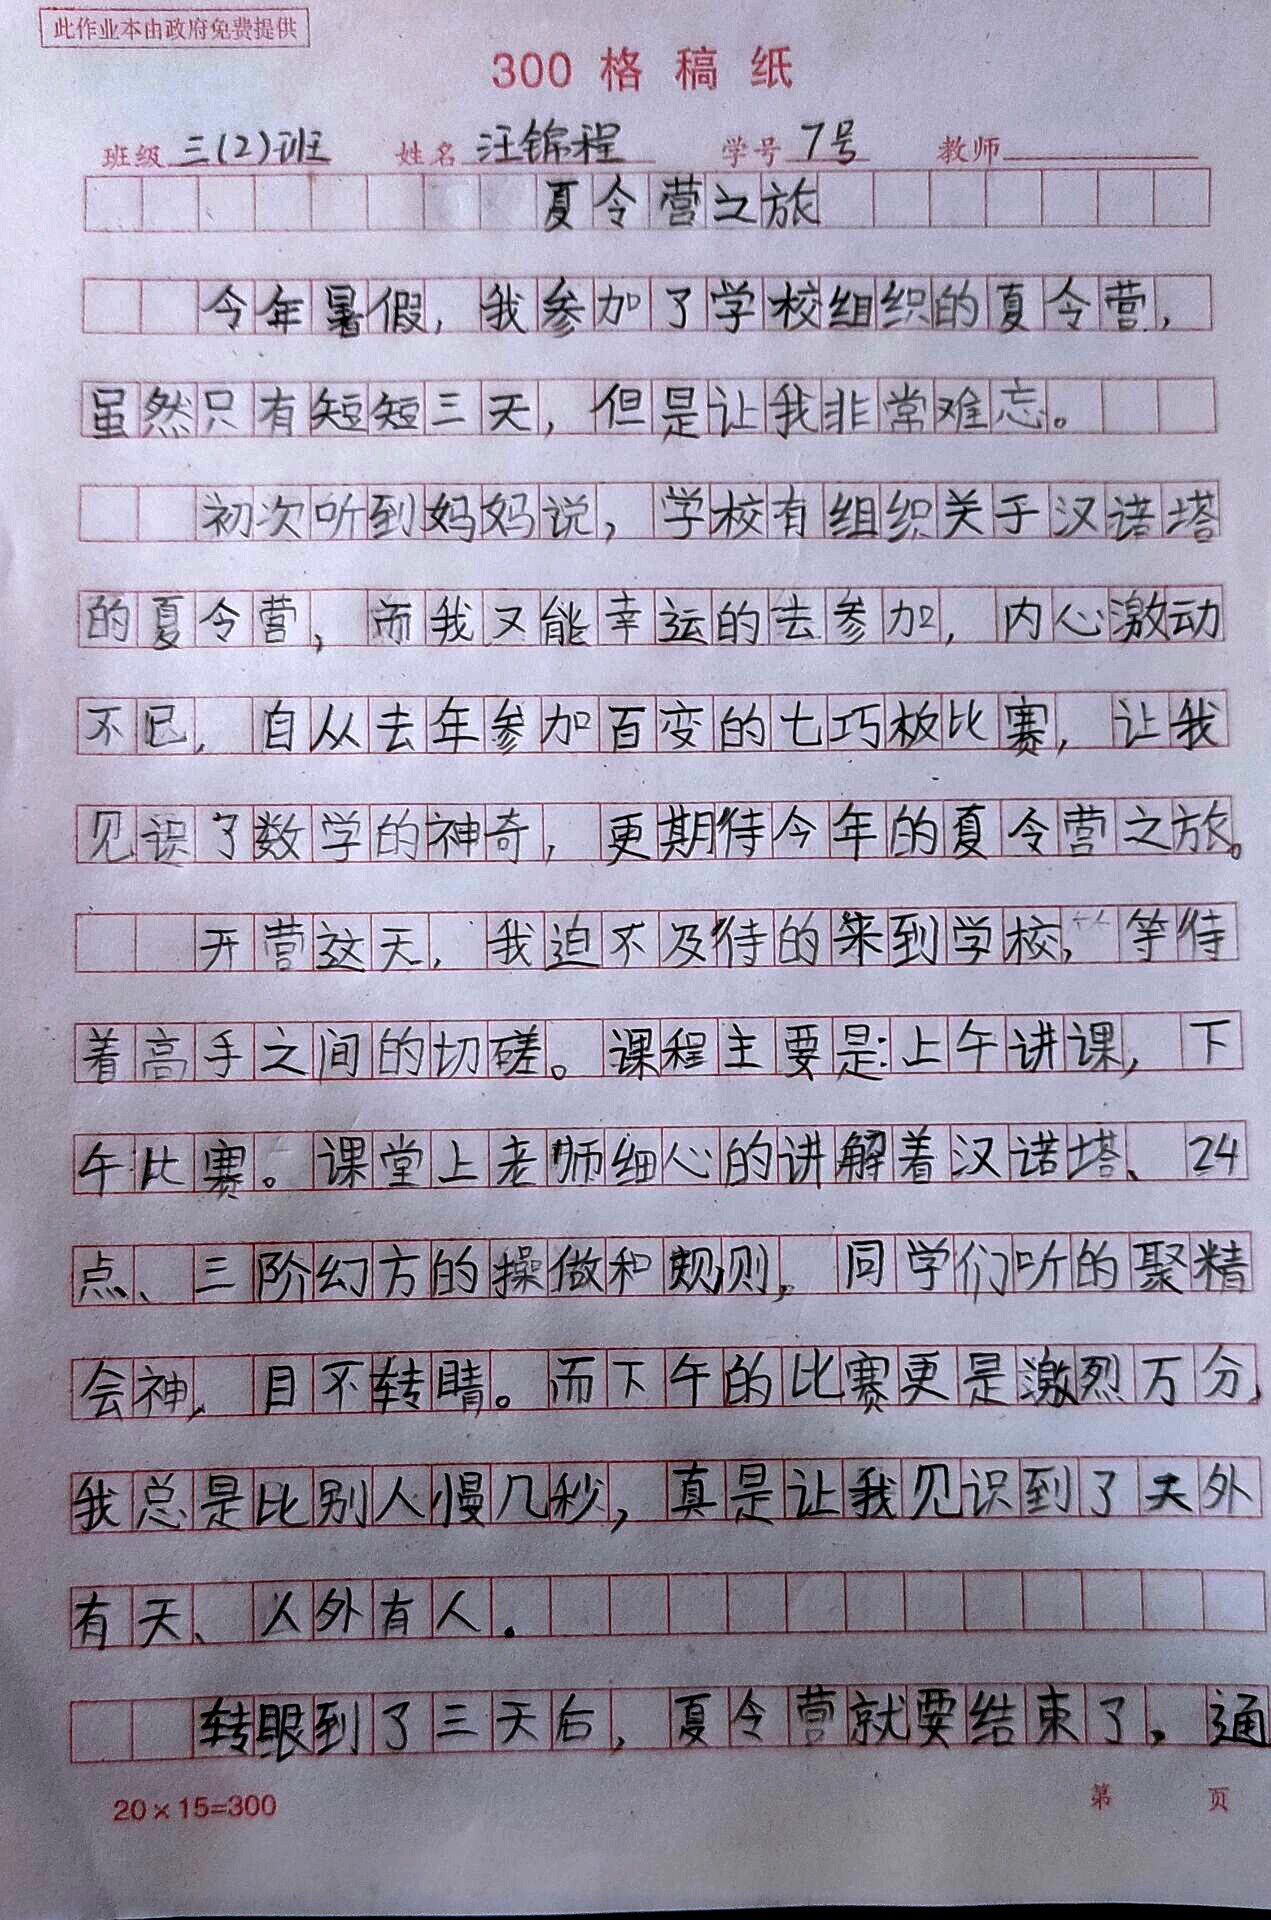 此作业本由政府免费提供
300 格 稿 纸
班级 三(2)班 姓名 汪锦程 学号 7号 教师
夏令营之旅
今年暑假，我参加了学校组织的夏令营，
虽然只有短短三天，但是让我非常难忘。
初次听到妈妈说，学校有组织关于汉诺塔
的夏令营，而我又能幸运的去参加，内心激动
不已，自从去年参加百变的七巧板比赛，让我
见识了数学的神奇，更期待今年的夏令营之旅。
开营这天，我迫不及待的来到学校，等待
着高手之间的切磋。课程主要是:上午讲课，下
午比赛。课堂上老师细心的讲解着汉诺塔、24
点、三阶幻方的操做和规则，同学们听的聚精
会神，目不转睛。而下午的比赛更是激烈万分，
我总是比别人慢几秒，真是让我见识到了天外
有天、人外有人。
转眼到了三天后，夏令营就要结束了，通
20×15=300 第 页